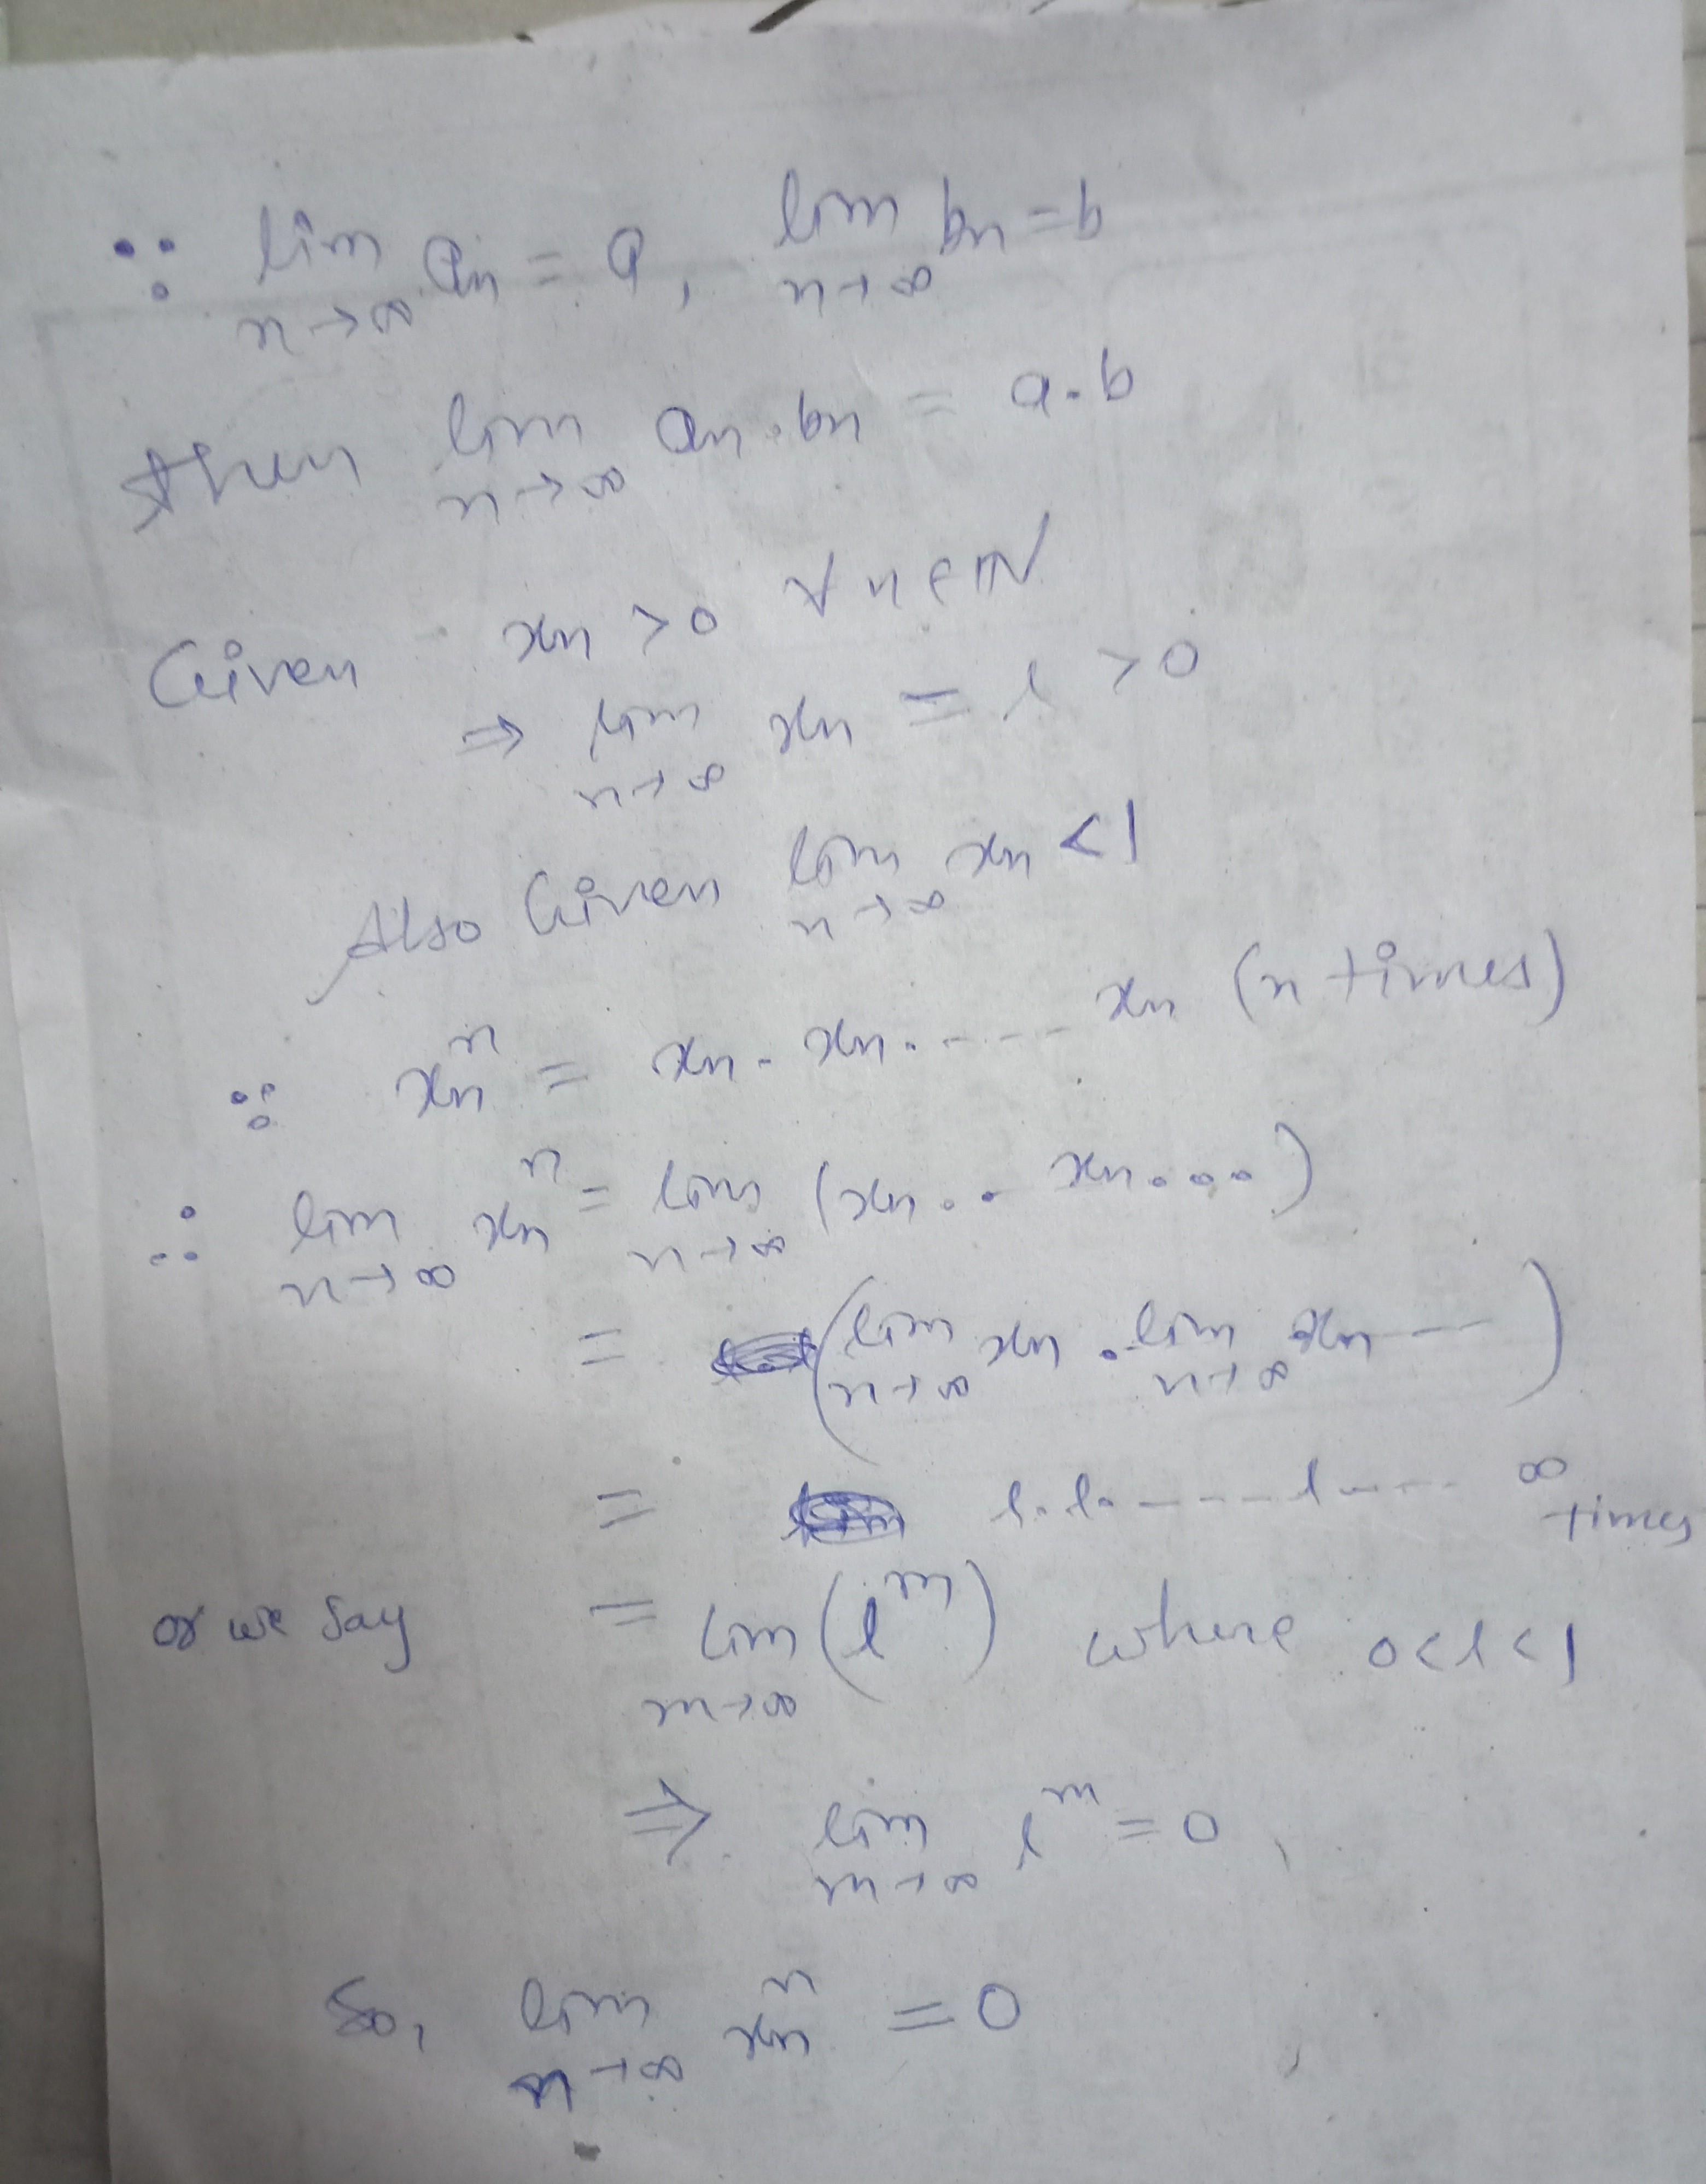 ∵ lim n→∞ an = a, lim n→∞ bn = b
then lim n→∞ an·bn = a·b
Given xn > 0 ∀ n ∈ ℕ
⇒ lim n→∞ xn = l > 0
Also Given lim n→∞ xn < 1
∵ xn^n = xn · xn · ---- xn (n times)
∴ lim n→∞ xn^n = lim n→∞ (xn · · xn · · · ·)
= (lim n→∞ xn · lim n→∞ xn ---)
= l·l· ---- l ---- ∞ times
or we say = lim m→∞ (l^m) where 0<l<1
⇒ lim m→∞ l^m = 0
So, lim n→∞ xn^n = 0